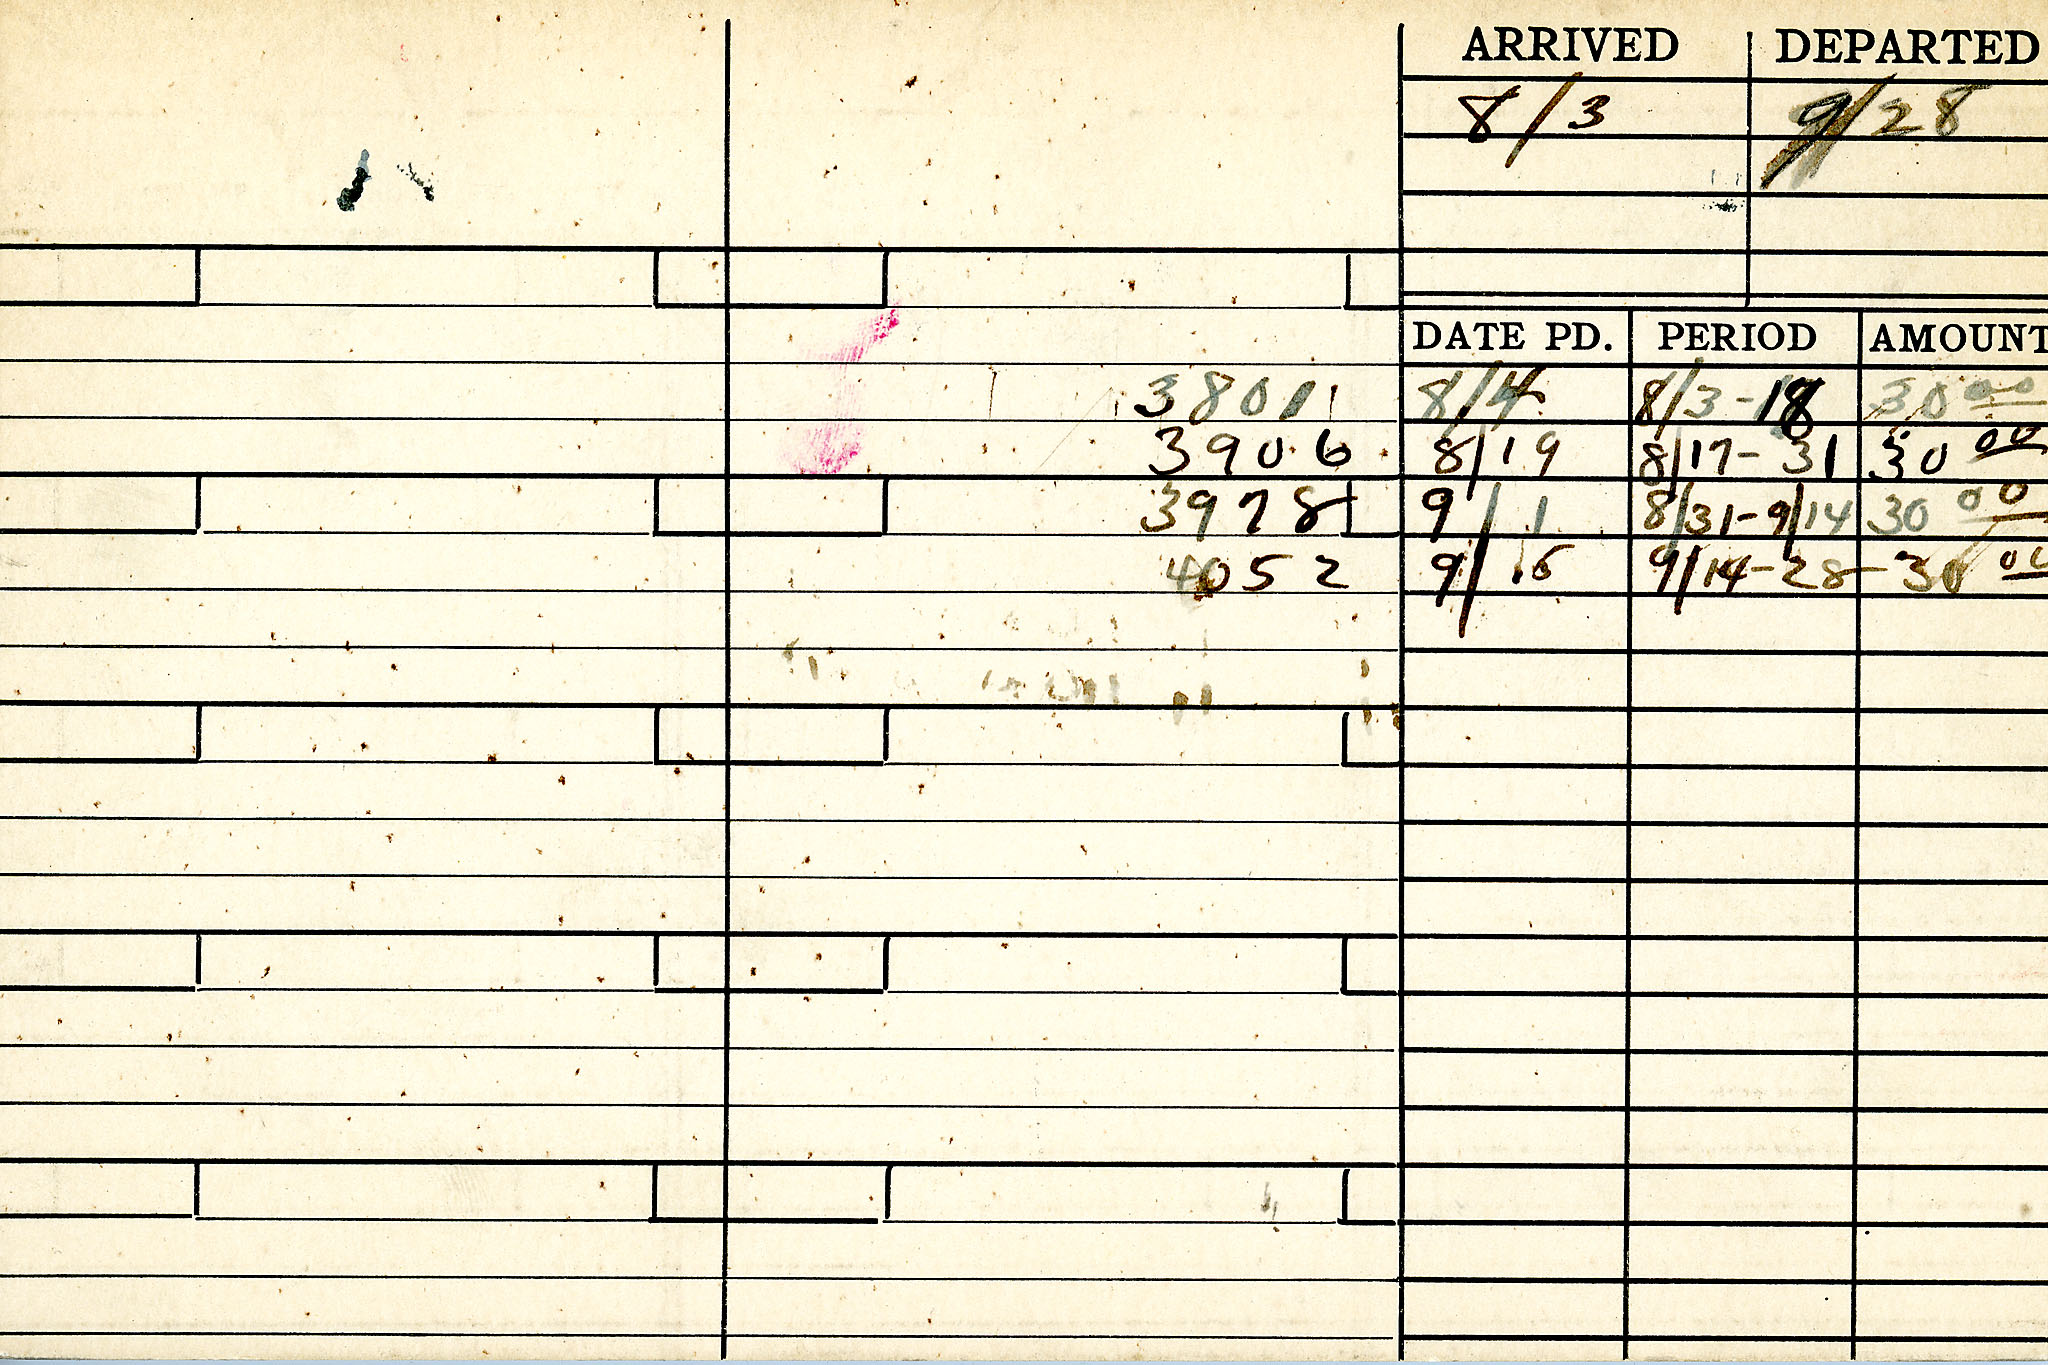 ARRIVED DEPARTED
8/3 9/28
DATE PD. PERIOD AMOUNT
3801 8/4 8/3-18 30 00
3906 8/19 8/17-31 30 00
3978 9/1 8/31-9/14 30 00
4052 9/15 9/14-28 30 00